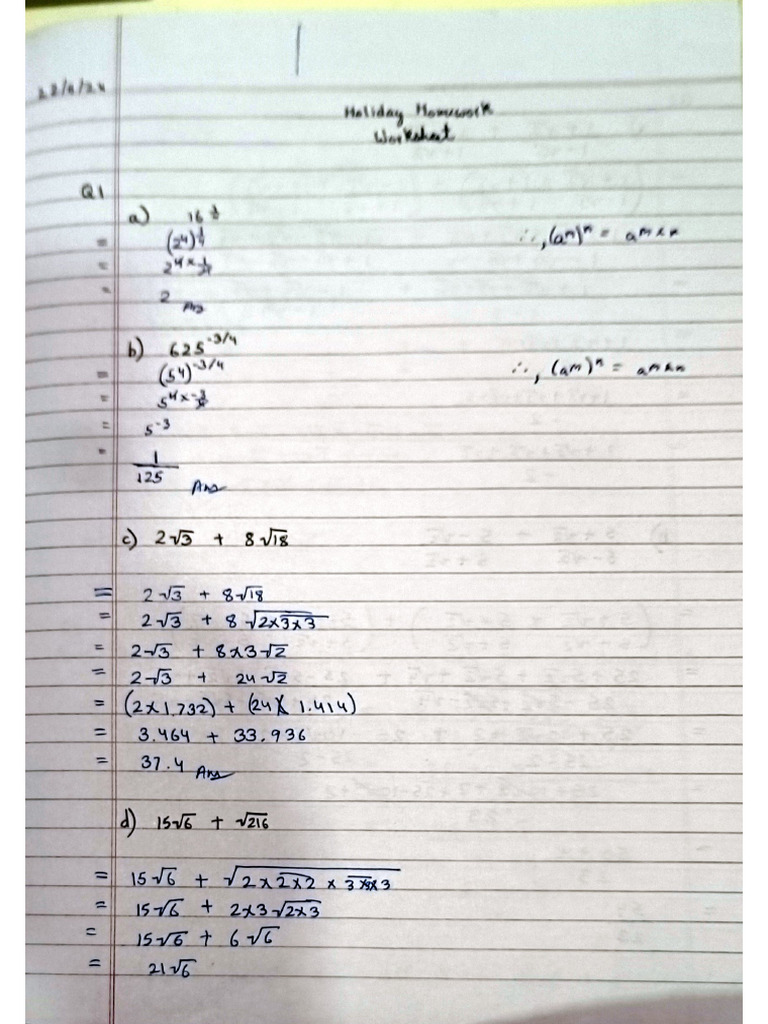 Holiday Homework
Worksheet
Q1
a) 16^
= (2⁴)^¼ ∴, (aᵐ)ⁿ = aᵐˣⁿ
= 2^4×1/4
= 2 Ans
b) 625^-3/4
= (5⁴)^-3/4 ∴, (aᵐ)ⁿ = aᵐˣⁿ
= 5^4×-3/4
= 5^-3
= 1/125 Ans
c) 2√3 + 8√18
= 2√3 + 8√18
= 2√3 + 8√2×3×3
= 2√3 + 8×3√2
= 2√3 + 24√2
= (2×1.732) + (24× 1.414)
= 3.464 + 33.936
= 37.4 Ans
d) 15√6 + √216
= 15√6 + √2×2×2×3×3×3
= 15√6 + 2×3√2×3
= 15√6 + 6√6
= 21√6